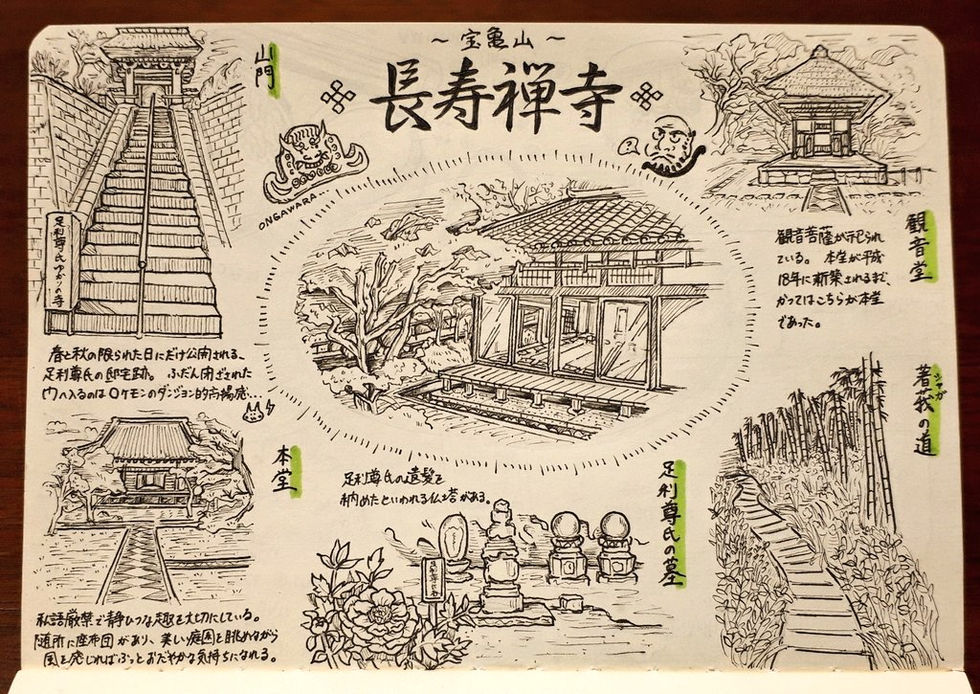 〜宝亀山〜
長寿禅寺
山門
ONGAWARA
足利尊氏ゆかりの寺
春と秋の限られた日にだけ公開される、
足利尊氏の邸宅跡。ふだん閉ざされた
門へ入るのは〇ケモンのダンジョン的高揚感…
観音堂
観音菩薩が祀られ
ている。本堂が平成
18年に新築されるまで、
かつてはこちらが本堂
であった。
本堂
私語厳禁で静ひつな趣を大切にしている。
随所に座布団があり、美しい庭園を眺めながら
目を閉じればふっとおだやかな気持ちになれる。
足利尊氏の墓
足利尊氏の遺髪を
納めたといわれる仏塔がある。
シャガ
著莪の道